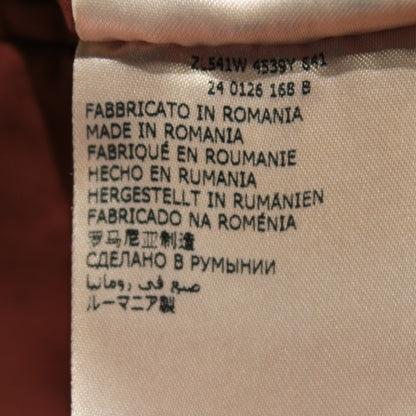 ZL541W 4539Y 641
24 0126 168 B
FABBRICATO IN ROMANIA
MADE IN ROMANIA
FABRIQUÉ EN ROUMANIE
HECHO EN RUMANIA
HERGESTELLT IN RUMÄNIEN
FABRICADO NA ROMÉNIA
罗马尼亚制造
СДЕЛАНО В РУМЫНИИ
صنع في رومانيا
ルーマニア製